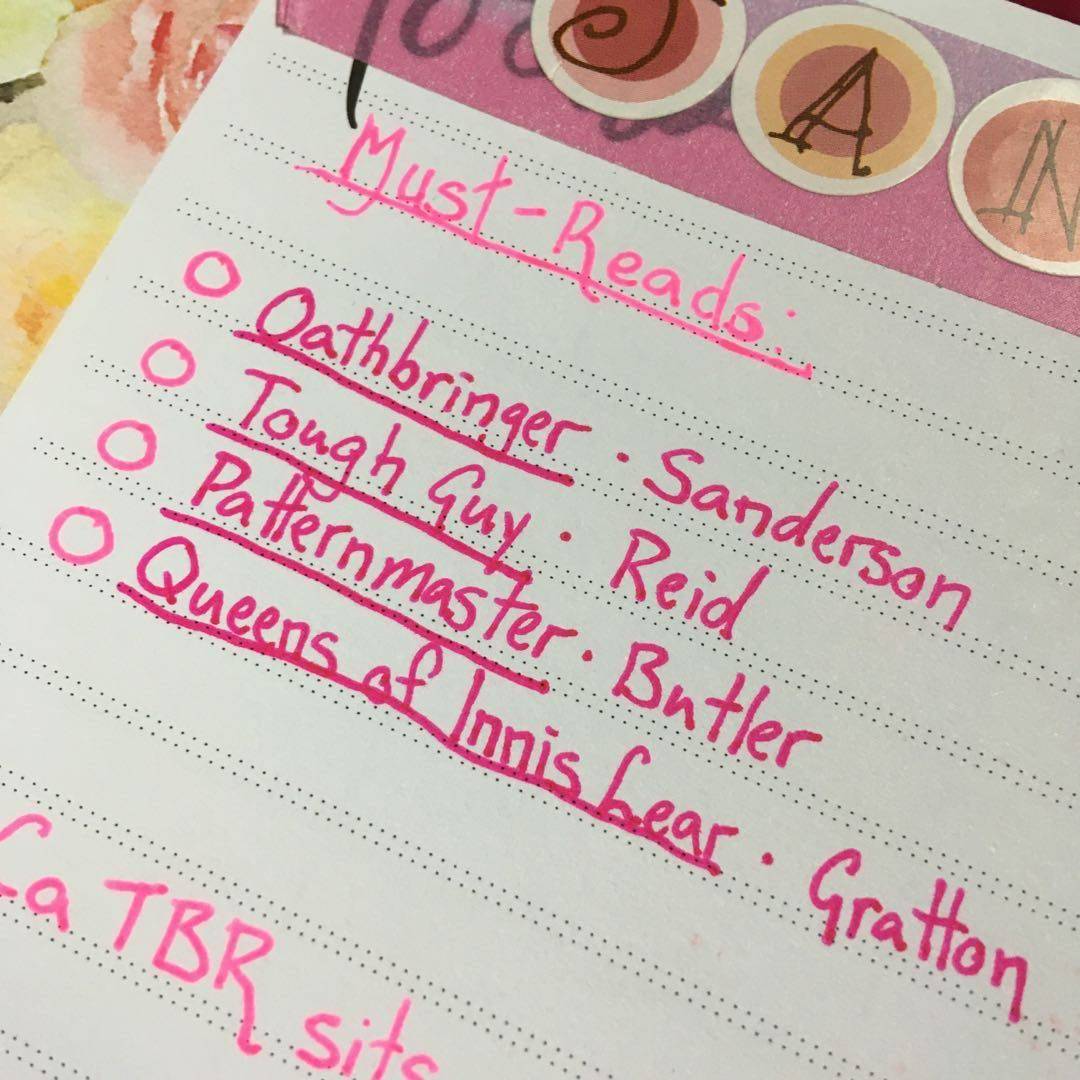 JAN
Must-Reads:
Oathbringer · Sanderson
Tough Guy · Reid
Patternmaster · Butler
Queens of Innis Lear · Gratton
TBR sits